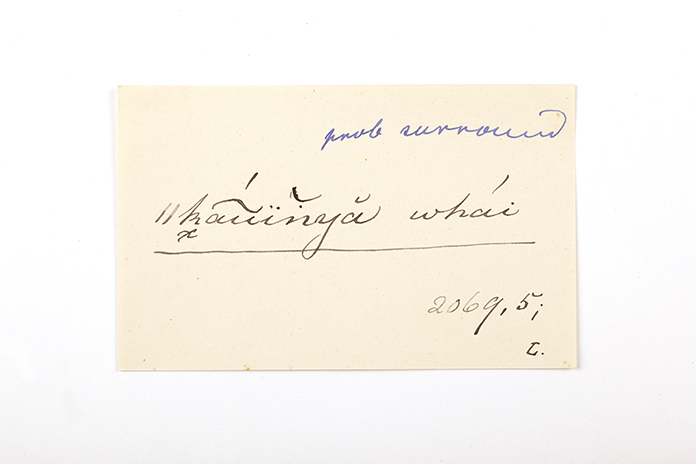 prob surround
ǁk͓ā́ūïn̆yă whái
2069, 5;
L.